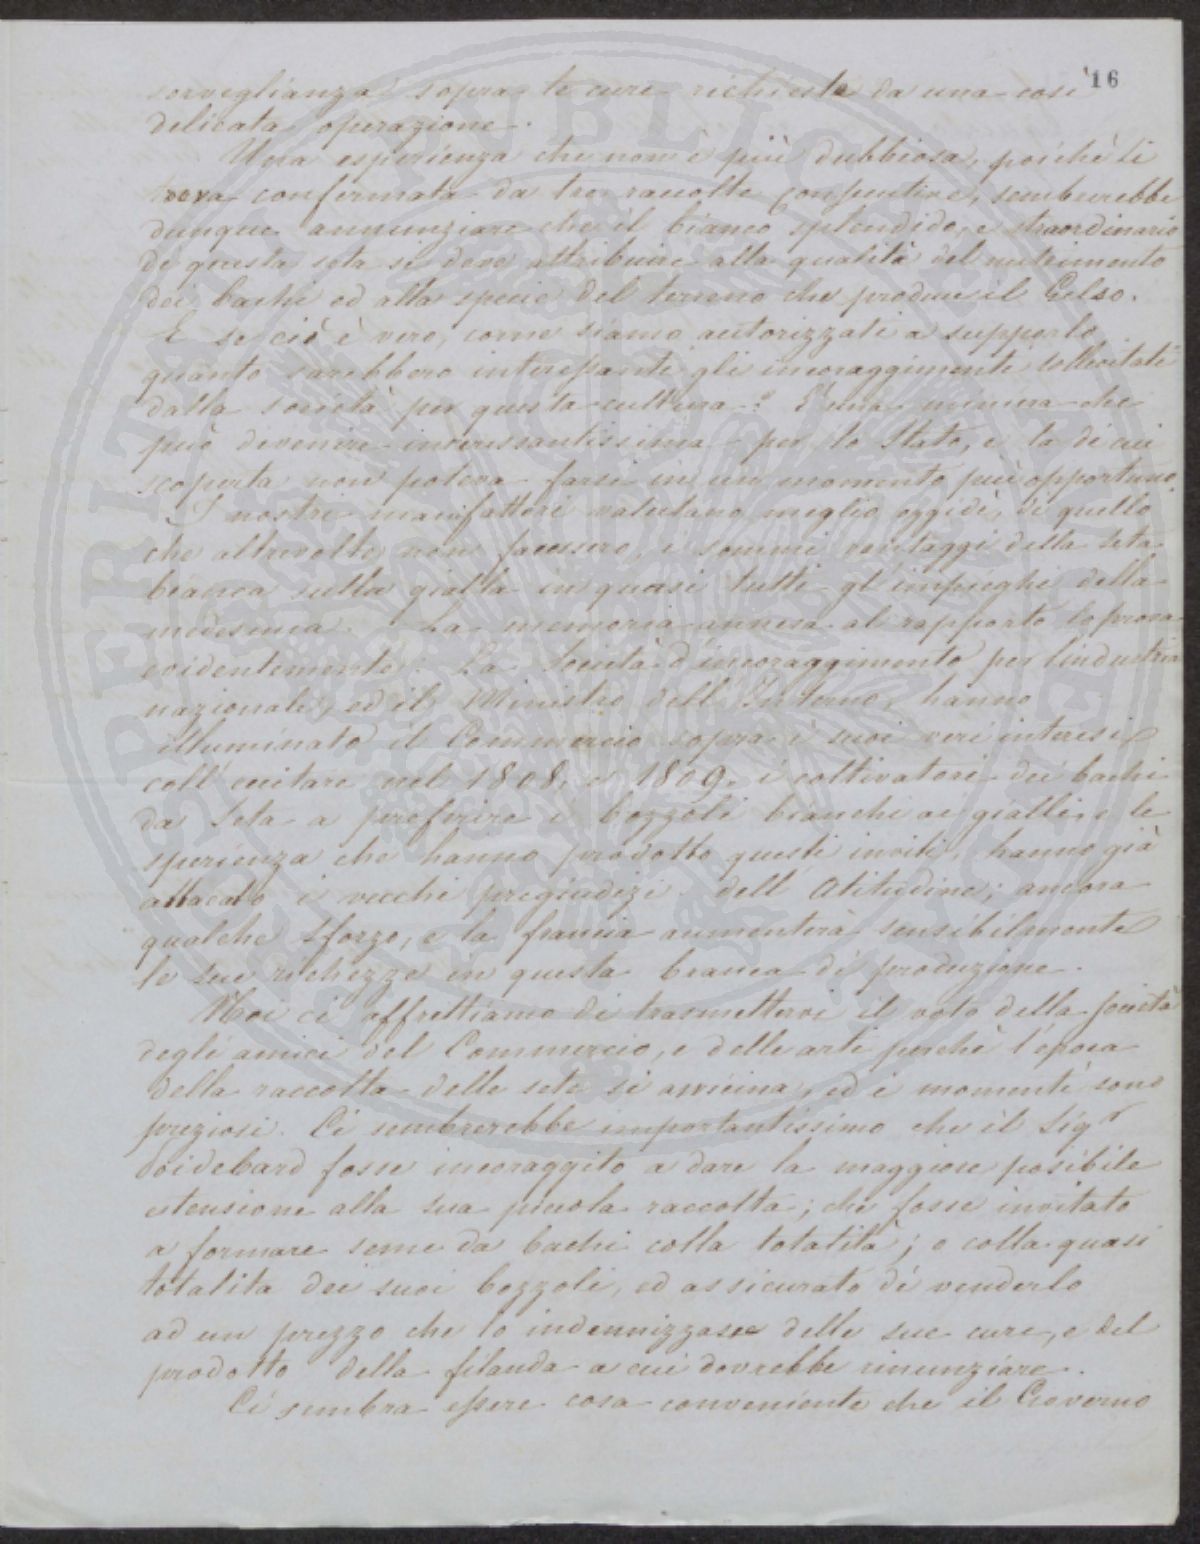 16
sorveglianza sopra le cure richieste da una così
delicata operazione.
Una esperienza che non è più dubbiosa, poichè si
trova confermata da tre raccolte consecutive, sembrerebbe
dunque annunziare che il bianco splendido, e straordinario
di questa seta si deve attribuire alla qualità del nutrimento
dei bachi ed alla specie del terreno che produce il Gelso.
E se ciò è vero, come siamo autorizzati a supporlo
quanto sarebbero interessanti gli incoraggimenti sollecitati
dalla società per questa cultura? È una miniera che
può divenire interessantissima per lo Stato, e la di cui
scoperta non poteva farsi in un momento più opportuno.
I nostri manifattori valutano meglio oggidì, di quello
che altrevolte non facessero, i sommi vantaggi della seta
bianca sulla gialla in quasi tutti gl'impieghi della
medesima. La memoria annessa al rapporto lo prova
evidentemente. La Società d'incoraggimento per l'industria
nazionale, ed il Ministro dell'Interno, hanno
illuminato il Commercio sopra i suoi veri interessi
coll'eccitare nel 1808, e 1809, i coltivatori dei bachi
da Seta a preferire i bozzoli bianchi ai gialli, e le
sperienza che hanno prodotto questi inviti, hanno già
attaccato i vecchi pregiudizi dell'Abitudine; ancora
qualche sforzo, e la francia aumenterà sensibilmente
le sue richezze in questa branca di produzione.
Noi ci affrettiamo di trasmettervi il voto della società
degli amici del Commercio, e delle arti perchè l'epoca
della raccolta delle sete si avvicina, ed i momenti sono
preziosi. Ci sembrerebbe importantissimo che il Sigr
Poidebard fosse incoraggito a dare la maggiore possibile
estensione alla sua piccola raccolta; che fosse invitato
a formare seme da bachi colla totalità; o colla quasi
totalita dei suoi bozzoli, ed assicurato di venderlo
ad un prezzo che lo indennizzasse delle sue cure, e del
prodotto della filanda a cui dovrebbe rinunziare.
Ci sembra essere cosa conveniente che il Governo